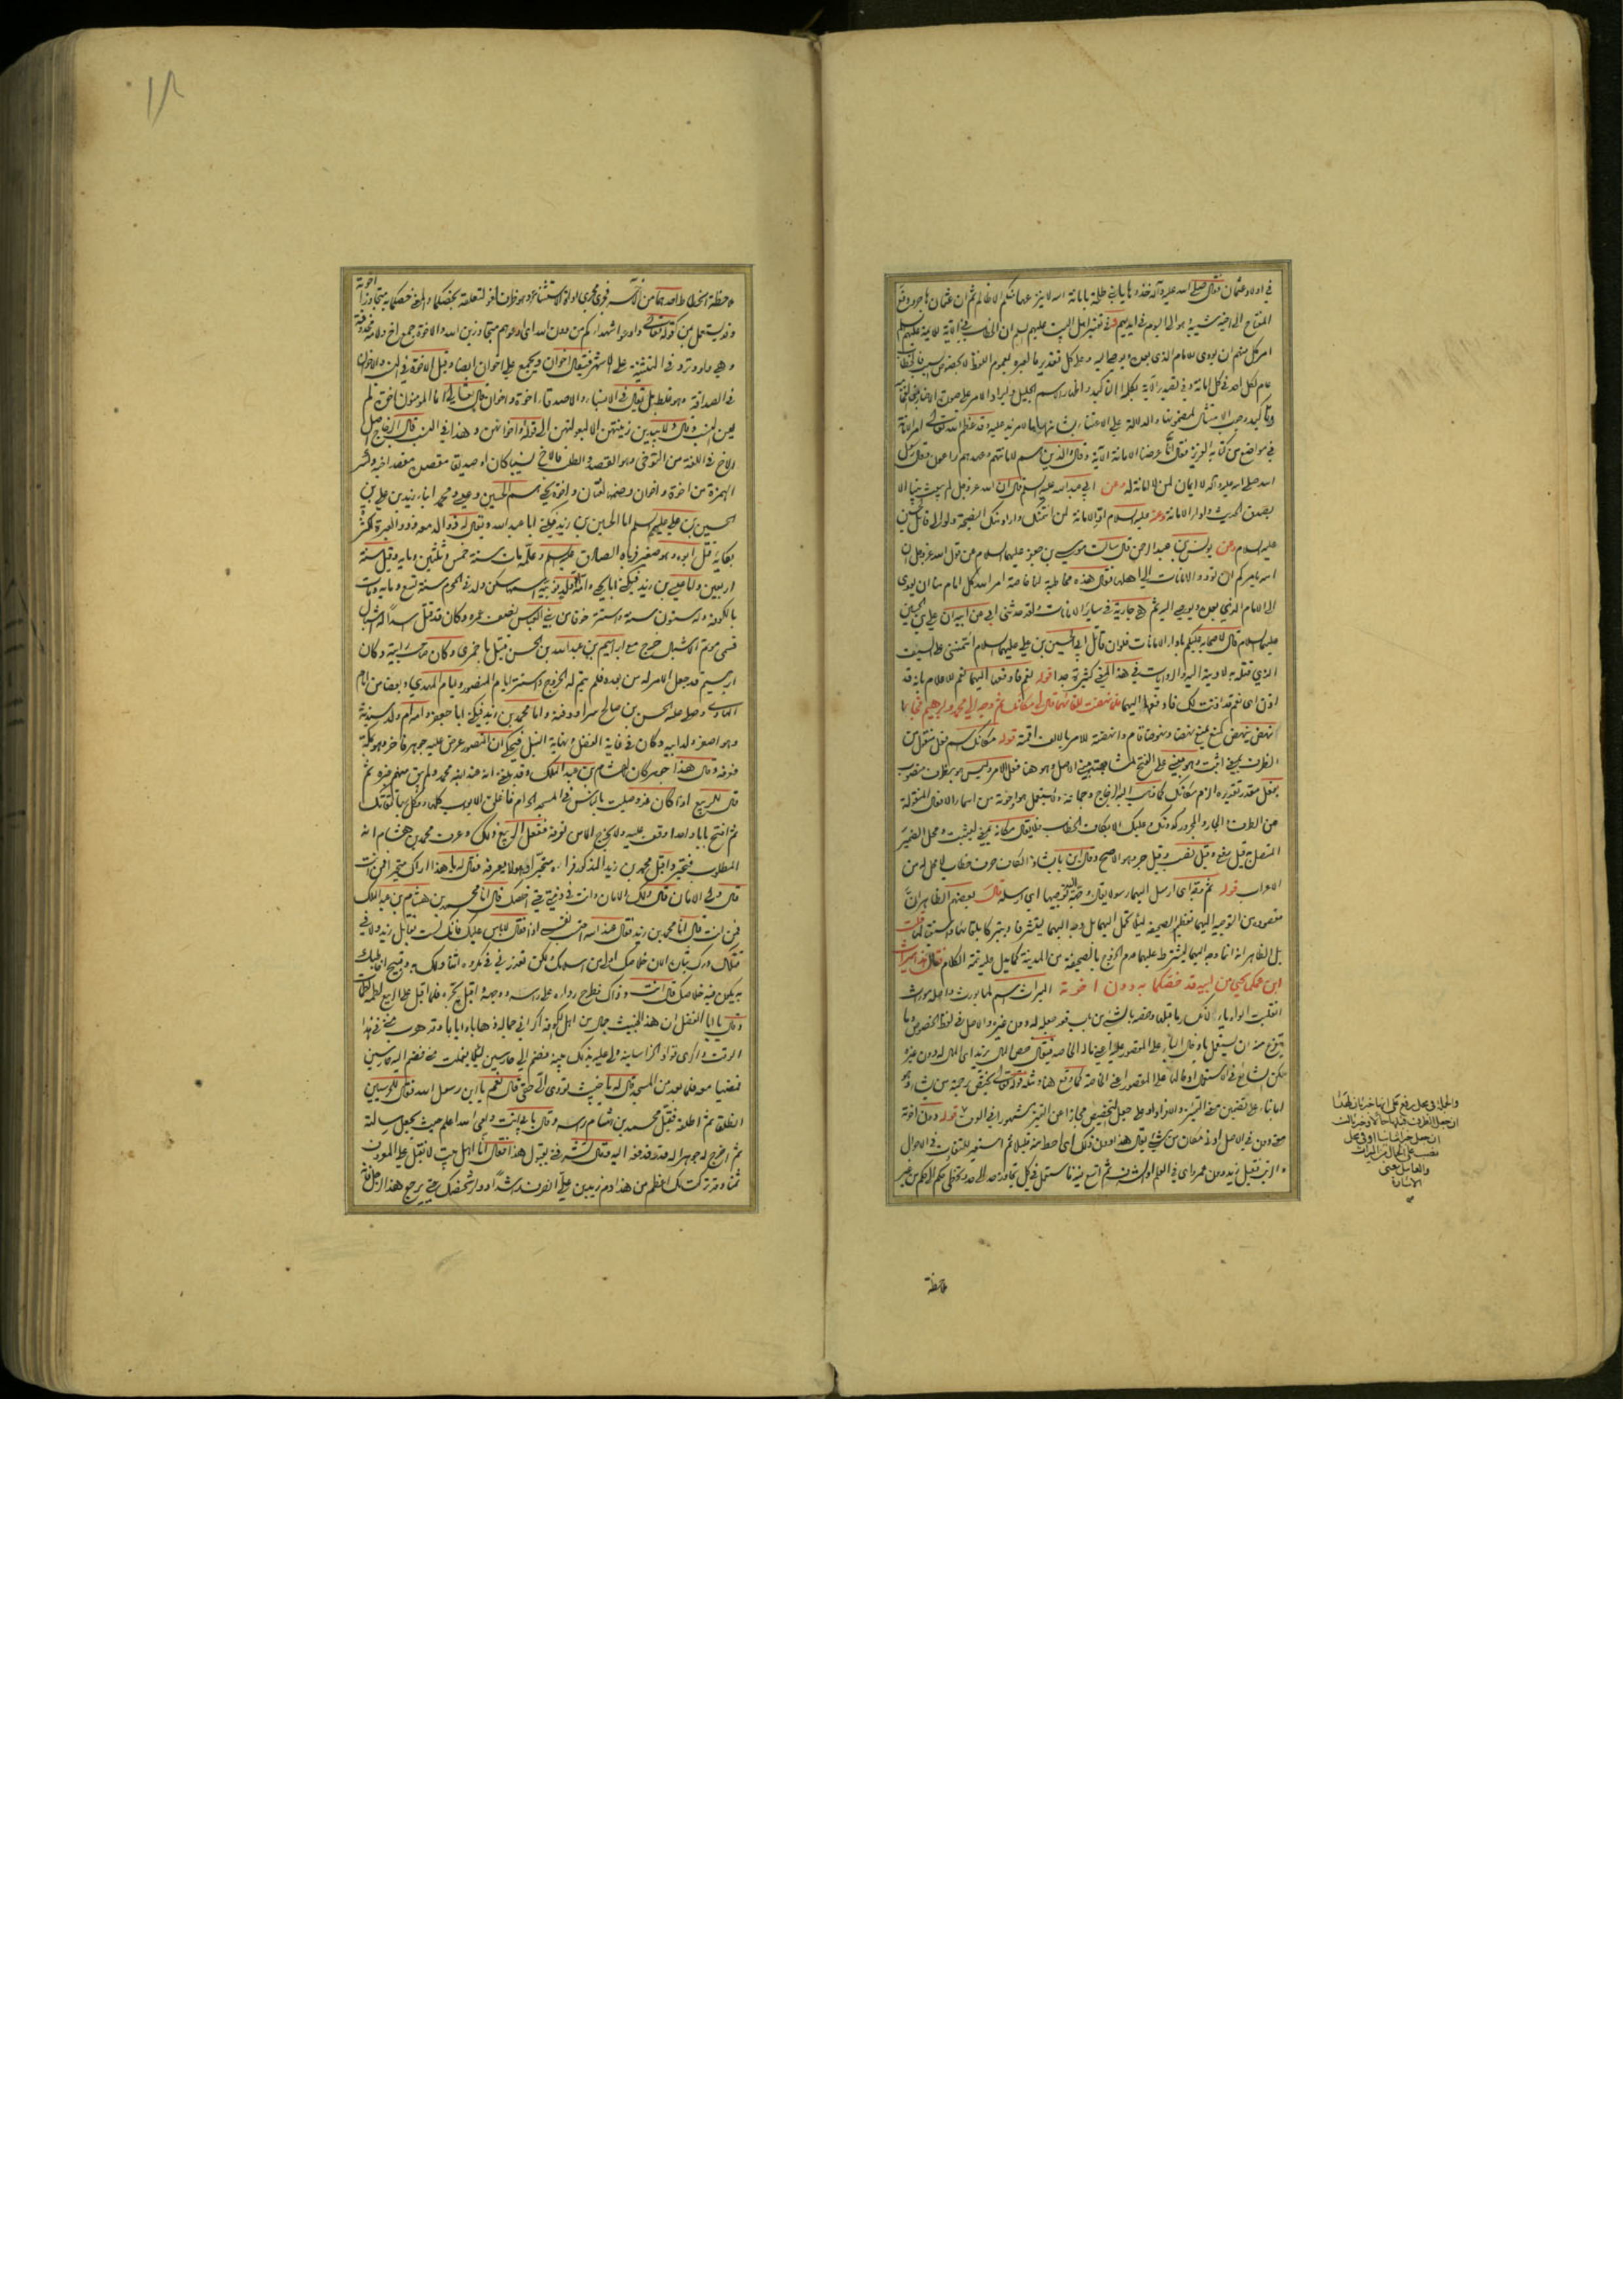 في اولاد عثمان فقال صلى الله عليه وآله خذوها يا بني طلحة بامانة الله لا ينزعها منكم الا ظالم ثم ان عثمان هاجر ودفع
المفتاح الى اخيه شيبة فهو الى اليوم في ايديهم وفي تفسير اهل البيت عليهم السلم ان الخطاب في الآية للأئمة عليهم السلم
امر كل منهم ان يؤدي للامام الذي بعده ويوصي اليه وعلى كل تقدير فالعبرة بعموم اللفظ لا بخصوص السبب فالخطاب
عام لكل احد في كل امانة وفي تصدير الآية بكلمة التاكيد واظهار الاسم الجليل وايراد الامر على صورة الاخبار من الفخامة
وتاكيد وجوب الامتثال لمضمونها والدلالة على الاعتناء بشانها ما لا مزيد عليه وقد عظم الله تعالى امر الامانة
في مواضع من كتابه العزيز فقال انا عرضنا الامانة الآية وقال والذين هم لاماناتهم وعهدهم راعون وقال رسول
الله صلى الله عليه وآله لا ايمان لمن لا امانة له وعن ابي عبد الله عليه السلم قال ان الله عز وجل لم يبعث نبيا الا
بصدق الحديث واداء الامانة وعنه عليه السلام ادوا الامانة لمن ائتمنك واراد منك النصيحة ولو الى قاتل الحسين
عليه السلام وعن يونس بن عبد الرحمن قال سالت موسى بن جعفر عليهما السلام عن قول الله عز وجل ان
الله يامركم ان تؤدوا الامانات الى اهلها فقال هذه مخاطبة لنا خاصة امر الله كل امام منا ان يؤدي
الى الامام الذي بعده ويوصي اليه ثم هي جارية في سائر الامانات ولقد حدثني ابي عن ابيه ان علي بن الحسين
عليهما السلام قال لاصحابه عليكم باداء الامانات فلو ان قاتل ابي الحسين بن علي عليهما السلام ائتمنني على السيف
الذي قتله به لاديته اليه والروايات في هذا المعنى كثيرة جدا قوله نعم فادفعها اليهما نعم للاعلام بانه قد
اذن اي نعم قد اذنت لك فادفعها اليهما فلما نهضت للقائهما قال لي مكانك ثم وجه الى محمد وابراهيم فجاءا
نهض ينهض كمنع يمنع نهضا ونهوضا قام وانهضته للامر بالالف اقمته قوله مكانك اسم فعل منقول من
الظرف بمعنى اثبت وهو مبني على الفتح
بفعل مقدر تقديره الزم مكانك كما ذهب اليه الزجاج وجماعة ولا يستعمل هو واخوته من اسماء الافعال المنقولة
عن الظرف والجار والمجرور كدونك وعليك الا بكاف الخطاب فلا يقال مكانه بمعنى ليثبت ومحل الضمير
المتصل قيل رفع وقيل نصب وقيل جر وهو الاصح وقال ابن بابشاذ الكاف حرف خطاب لا محل له من
الاعراب قوله ثم وجه اي ارسل اليهما رسولا يقال وجهته توجيها اي ارسلته قال بعضهم الظاهر ان
مقصوده من التوجيه اليهما تعظيم الصحيفة لئلا تحمل اليهما بل وجه اليهما ليتشرفا ويتبركا بلقائها واستقبالها قلت
بل الظاهر انه انما وجه اليهما ليشترط عليهما عدم الخروج بالصحيفة من المدينة كما يدل عليه تتمة الكلام فقال هذا ميراث
ابن عمكما يحيى من ابيه قد خصكما به دون اخوته الميراث اسم لما يورث واصله موراث
انقلبت الواو ياء لانكسار ما قبلها وخصه بالشيء من باب قعد جعله له دون غيره والاصل في لفظ الخصوص وما
يتفرع منه ان يستعمل بادخال الباء على المقصور عليه اعني ماله الخاصة فيقال خص المال بزيد اي المال له دون غيره
لكن الشائع في الاستعمال ادخالها على المقصور اعني الخاصة كما وقع هنا ومثله قوله تعالى يختص برحمته من يشاء
اما بناء على تضمين معنى التمييز والافراد او على جعل التخصيص مجازا عن التمييز مشهورا في العرف قوله دون اخوته
معنى دون في الاصل ادنى مكان من شيء يقال هذا دون ذلك اي احط منه قليلا ثم استعير للتفاوت في الاحوال
والرتب فقيل زيد دون عمرو اي في العلم والشرف ثم اتسع فيه فاستعمل في كل تجاوز حد الى حد وتخطي حكم الى حكم من غير
ملاحظة
والجملة في محل رفع على انها خبر ثان لهذا
ان جعل الظرف قبلها حالا وخبر ثالث
ان جعل خبرا ثانيا او في محل
نصب على الحال من الميراث
والعامل معنى
الاشارة
ملاحظة انحطاط احدهما من الآخر فجرى مجرى اداة الاستثناء وهو ظرف لغو لتعلقه بخصكما والمعنى خصكما به متجاوزا اخوته
وقد يستعمل بمن كقوله تعالى وادعوا شهداءكم من دون الله اي ادعوهم متجاوزين الله والاخوة جمع اخ ولامه محذوفة
وهي واو وترد في التثنية على الاشهر فيقال اخوان ويجمع على اخوان ايضا وقيل الاخوة في النسب والاخوان
في الصداقة وهو غلط بل يقال في الانسباء والاصدقاء اخوة واخوان قال تعالى انما المؤمنون اخوة لم
يعن النسب وقال ولا يبدين زينتهن الا لبعولتهن الى قوله او اخوانهن وهذا في النسب قال الزجاج اصل
الاخ في اللغة من التوخي وهو القصد والطلب فالاخ نسيبا كان او صديقا مقصده مقصد اخيه وكسر
الهمزة من اخوة واخوان وضمها لغتان واخوة يحيى هم الحسين وعيسى ومحمد ابناء زيد بن علي بن
الحسين بن علي عليهم السلم اما الحسين بن زيد فيكنى ابا عبد الله ويقال له ذو الدمعة وذو العبرة لكثرة
بكائه قتل ابوه وهو صغير فرباه الصادق عليه السلم وعلمه مات سنة خمس وثلثين ومايه وقيل سنة
اربعين واما عيسى بن زيد فيكنى ابا يحيى وامه ام ولد نوبية اسمها سكن ولد في المحرم سنة تسع ومايه ومات
بالكوفة وله ستون سنة واستتر خوفا من بني العباس نصف عمره وكان قد قتل اسدا له اشبال
فسمي موتم الاشبال خرج مع ابراهيم بن عبد الله بن الحسن قتيل باخمرى وكان صاحب رايته وكان
ابراهيم قد جعل الامر له من بعده فلم يتم له الخروج واستتر ايام المنصور وايام المهدي وبعضا من ايام
الهادي وصلى عليه الحسن بن صالح سرا ودفنه واما محمد بن زيد فيكنى ابا جعفر وامه ام ولد سندية
وهو اصغر ولد ابيه وكان في غاية الفضل ونهاية النبل فيحكى ان المنصور عرض عليه جوهر فاخر وهو بمكة
فعرفه وقال هذا جوهر كان لهشام بن عبد الملك وقد بلغني انه عند ابنه محمد ولم يبق منهم غيره ثم
قال للربيع اذا كان غد وصليت بالناس في المسجد الحرام فاغلق الابواب كلها ووكل بها ثقاتك
ثم افتح بابا واحدا وقف عليه ولا يخرج الا من تعرفه ففعل الربيع ذلك وعرف محمد بن هشام انه
المطلوب فتحير واقبل محمد بن زيد المذكور فراه متحيرا وهو لا يعرفه فقال له يا هذا اراك متحيرا فمن انت
قال ولي الامان قال ولك الامان وانت في ذمتي حتى اخلصك قال انا محمد بن هشام بن عبد الملك
فمن انت قال انا محمد بن زيد فقال عند الله احتسب نفسي اذا فقال لا باس عليك فانك لست بقاتل زيد ولا في
قتلك درك بثاره الان خلاصك اولى من اسلامك ولكن تعذرني في مكروه اتناولك به وقبيح اخاطبك
به يكون فيه خلاصك قال انت وذاك فطرح رداءه على راسه ووجهه واقبل يجره فلما اقبل على الربيع لطمه لطمات
وقال يا ابا الفضل ان هذا الخبيث جمال من اهل الكوفة اكراني جماله ذهابا وايابا وقد هرب مني في هذا
الوقت واكرى قواد الخراسانية ولي عليه بذلك بينة فضم الي حارسين لئلا يفلت مني فضم اليه حارسين
فمضيا معه فلما بعد من المسجد قال له يا خبيث تؤدي الي حقي قال نعم يا ابن رسول الله فقال للحرسيين
انطلقا ثم اطلقه فقبل محمد بن هشام راسه وقال بابي انت وامي الله اعلم حيث يجعل رسالته
ثم اخرج له جوهرا له قدر فدفعه اليه وقال تشرفني بقبول هذا فقال انا اهل بيت لا نقبل على المعروف
ثمنا وقد تركت لك اعظم من هذا دم زيد بن علي انصرف راشدا ووار شخصك حتى يرجع هذا الرجل فانه